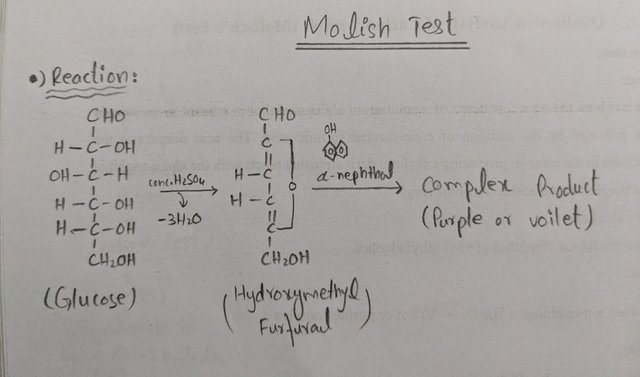 Molish Test
•) Reaction:
CHO
H-C-OH
OH-C-H
H-C-OH
H-C-OH
CH2OH
(Glucose)
conc.H2SO4
-3H2O
CHO
C
H-C
H-C
C
O
CH2OH
(Hydroxymethyl
Furfural)
OH
α-nephthal
Complex Product
(Purple or voilet)